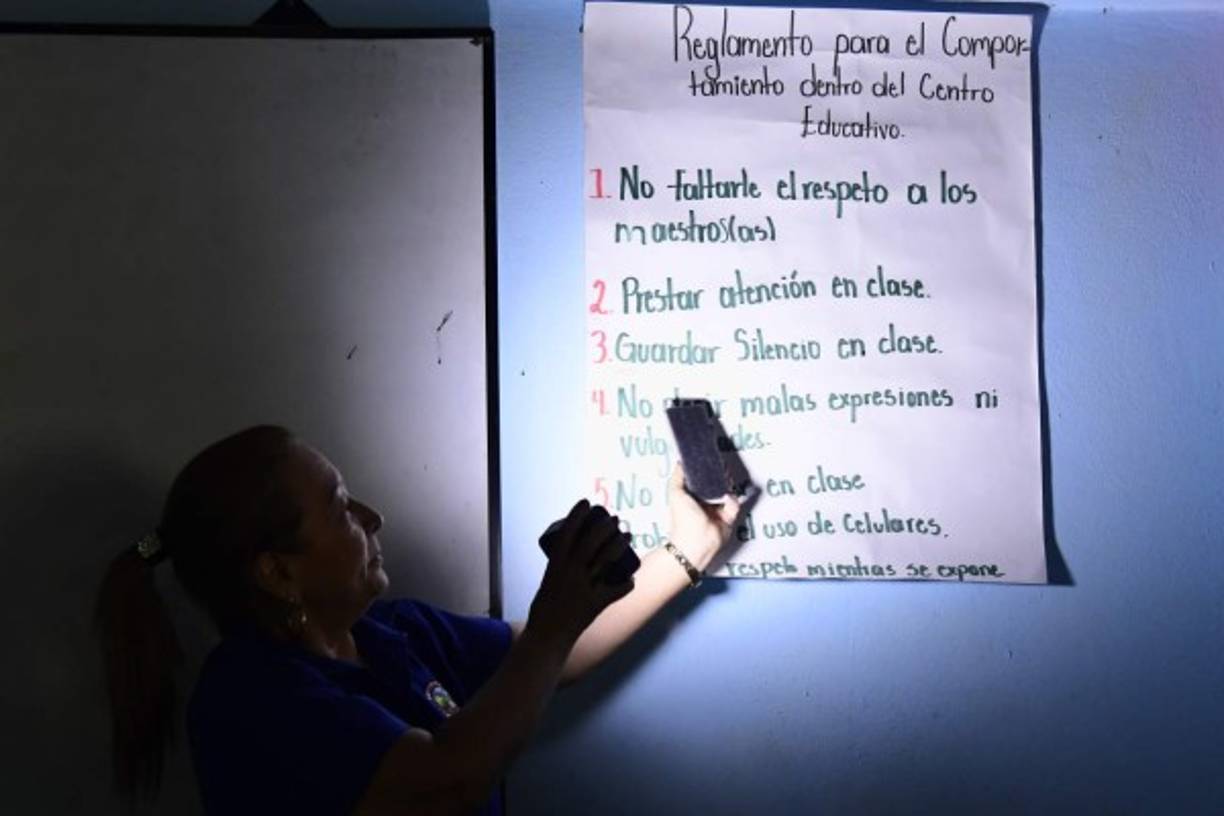 Reglamento para el Compor-
tamiento dentro del Centro
Educativo.
1. No faltarle el respeto a los
maestros(as)
2. Prestar atención en clase.
3. Guardar Silencio en clase.
4. No malas expresiones ni
5. No en clase
el uso de Celulares.
respeto mientras se expone